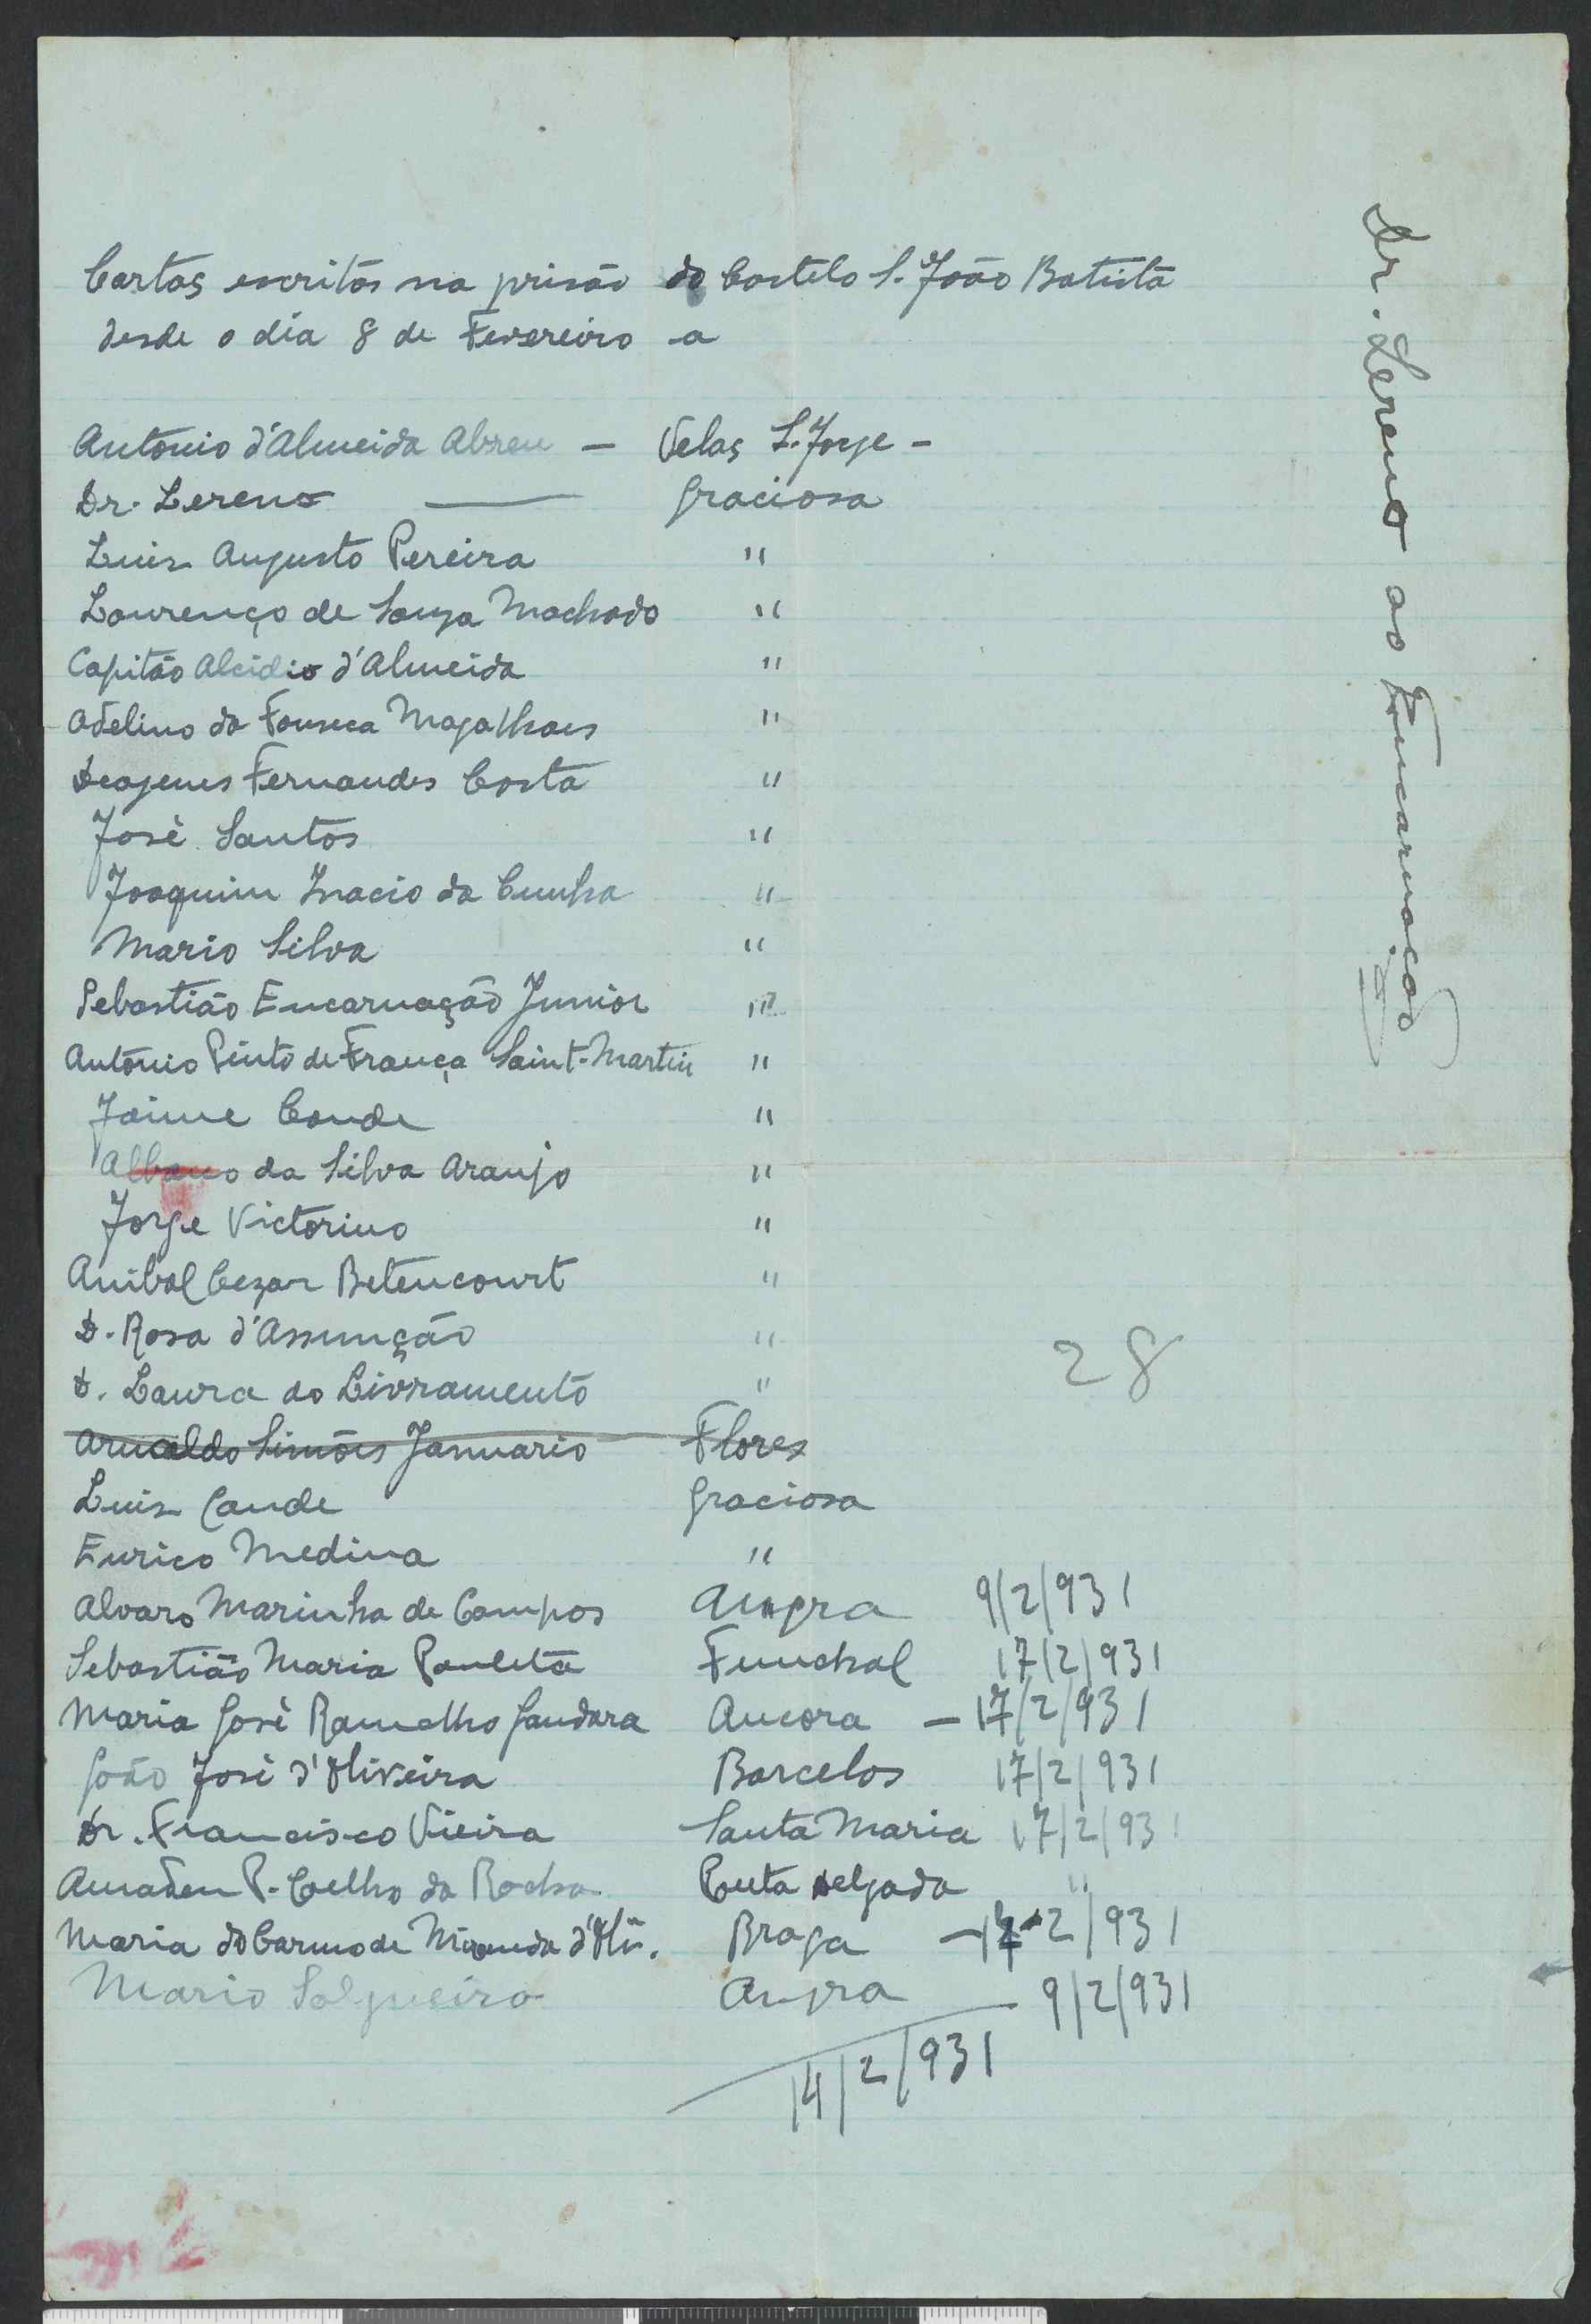 Cartas escritas na prisão do Castelo S. João Batista
desde o dia 8 de Fevereiro a
António d'Almeida Abreu — Velas S. Jorge -
Dr. Lereno — Graciosa
Luis Augusto Pereira "
Lourenço de Souza Machado "
Capitão Alcidio d'Almeida "
Adelino da Fonseca Magalhaes "
Deogenes Fernandes Costa "
José Santos "
Joaquim Inacio da Cunha "
Mario Silva "
Sebastião Encarnação Junior "
António Pinto de França Saint-Martin "
Jaime Conde "
Albano da Silva Araujo "
Jorge Victorino "
Anibal Cezar Betencourt "
D. Rosa d'Assunção "
D. Laura do Livramento "
28
Arnaldo Simões Januario Flores
Luis Conde Graciosa
Eurico Medina "
Alvaro Marinha de Campos Angra 9/2/931
Sebastião Maria Pauleta Funchal 17/2/931
Maria José Ramalho Gandara Ancora — 17/2/931
João José d'Oliveira Barcelos 17/2/931
Dr. Francisco Vieira Santa Maria 17/2/931
Amadeu P. Coelho da Rocha Ponta Delgada "
Maria do Carmo de Miranda d'Oliv. Braga — 2/931
Mario Salgueiro Angra 9/2/931
14/2/931
Dr. Lereno ao Encarnação